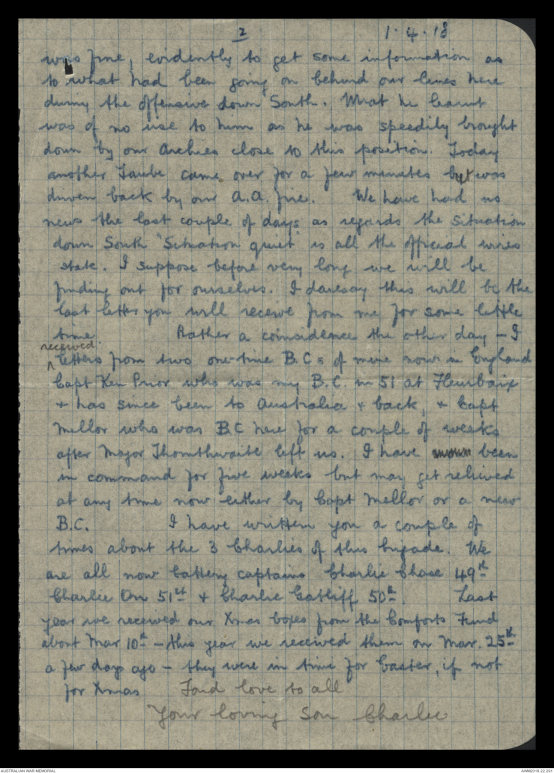 2
1.4.18
was fine, evidently to get some information as
to what had been going on behind our lines here
during the offensive down South. What he learnt
was of no use to him as he was speedily brought
down by our Archies close to this position. Today
another Taube came over for a few minutes but was
driven back by our A.A. fire. We have had no
news the last couple of days as regards the situation
down South "Situation quiet" is all the official wires
state. I suppose before very long we will be
finding out for ourselves. I daresay this will be the
last letter you will receive from me for some little
time. Rather a coincidence the other day - I
received
letters from two one-time B.C.s of mine now in England
Capt Ken Prior who was my B.C. in 51 at Fleurbaix
+ has since been to Australia + back, + Capt
Mellor who was B.C here for a couple of weeks
after Major Thornthwaite left us. I have been
in command for five weeks but may get relieved
at any time now either by Capt Mellor or a new
B.C. I have written you a couple of
times about the 3 Charlies of this brigade. We
are all now battery captains Charlie Chase 49th
Charlie Orr 51st + Charlie Gatliff 50th Last
year we received our Xmas boxes from the Comforts Fund
about Mar 10th - this year we received them on Mar. 25th
a few days ago - they were in time for Easter, if not
for Xmas Fond love to all
Your loving son Charlie
AUSTRALIAN WAR MEMORIAL